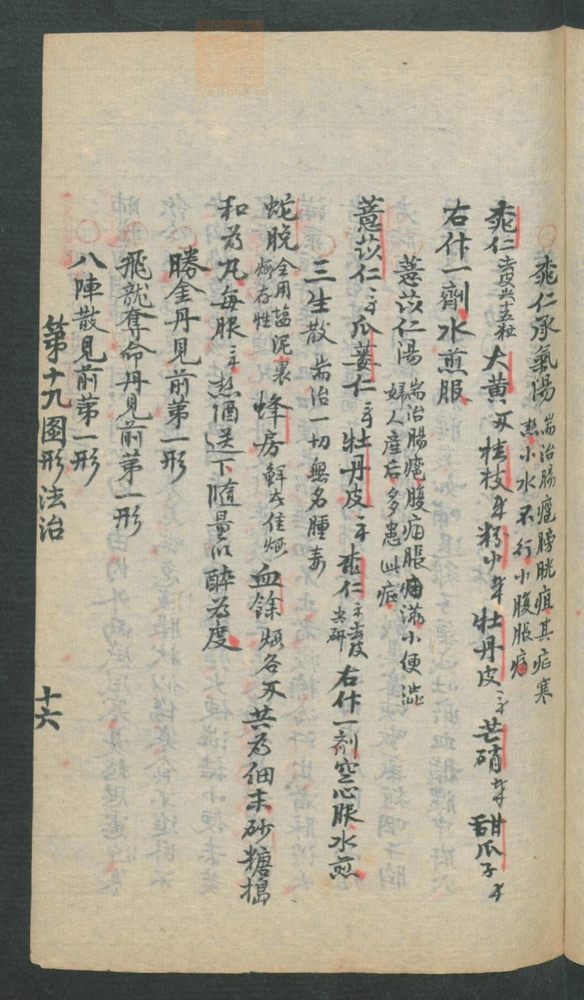 桃仁承氣湯 耑治腸癰膀胱疽其症寒
熱小水不行小腹脹痛
桃仁去皮尖 大黄 桂枝 粉 牡丹皮 芒硝 甜瓜子
右什一劑水煎服
薏苡仁湯 耑治腸癰腹痛脹痛滿小便澁
婦人産后多患此症
薏苡仁 瓜蔞仁 牡丹皮 桃仁去皮尖研 右什一劑空心服水煎
三生散 耑治一切無名腫毒
蛇脫全用塩泥裹煅存性 蜂房 血餘煅各 共為細末砂糖搗
和为丸每服 热酒送下随量以醉为度
勝金丹見前第一形
飛龍奪命丹見前第一形
八陣散見前第一形
第十九图形法治
十六